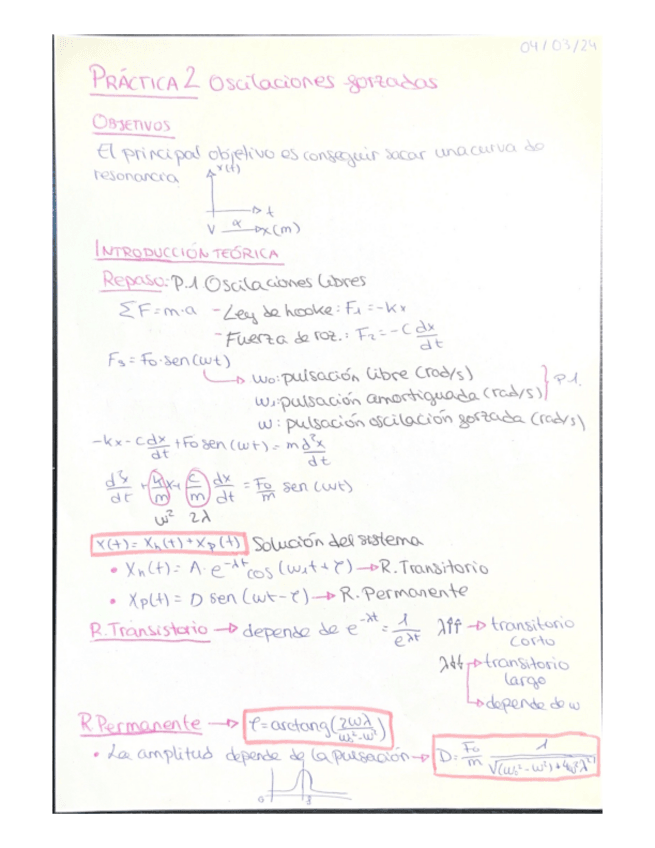 04/03/24
PRÁCTICA 2 Oscilaciones forzadas
OBJETIVOS
El principal objetivo es conseguir sacar una curva de
resonancia
x(t)
t
V α x(m)
INTRODUCCIÓN TEÓRICA
Repaso: P.1 Oscilaciones libres
ΣF=m·a - Ley de hooke: F₁=-kx
- Fuerza de roz.: F₂=-C dx/dt
F₃=F₀·sen(ωt)
ω₀: pulsación libre (rad/s)
ω₁: pulsación amortiguada (rad/s) } P1.
ω: pulsación oscilación forzada (rad/s)
-kx-C dx/dt + F₀ sen(ωt)= m d²x/dt
d²x/dt + k/m x + c/m dx/dt = F₀/m sen(ωt)
ω² 2λ
x(t)= Xh(t)+Xp(t) Solución del sistema
• Xh(t)= A·e^-λt cos(ω₁t+τ) → R. Transitorio
• Xp(t)= D sen(ωt-τ) → R. Permanente
R. Transistorio → depende de e^-λt = 1/e^λt λ↑↑ → transitorio
corto
λ↓↓ → transitorio
largo
→ depende de ω
R Permanente → τ=arctang(2ωλ/ω₀²-ω²)
• La amplitud depende de la pulsación → D= F₀/m 1/√(ω₀²-ω²)+4ω²λ²